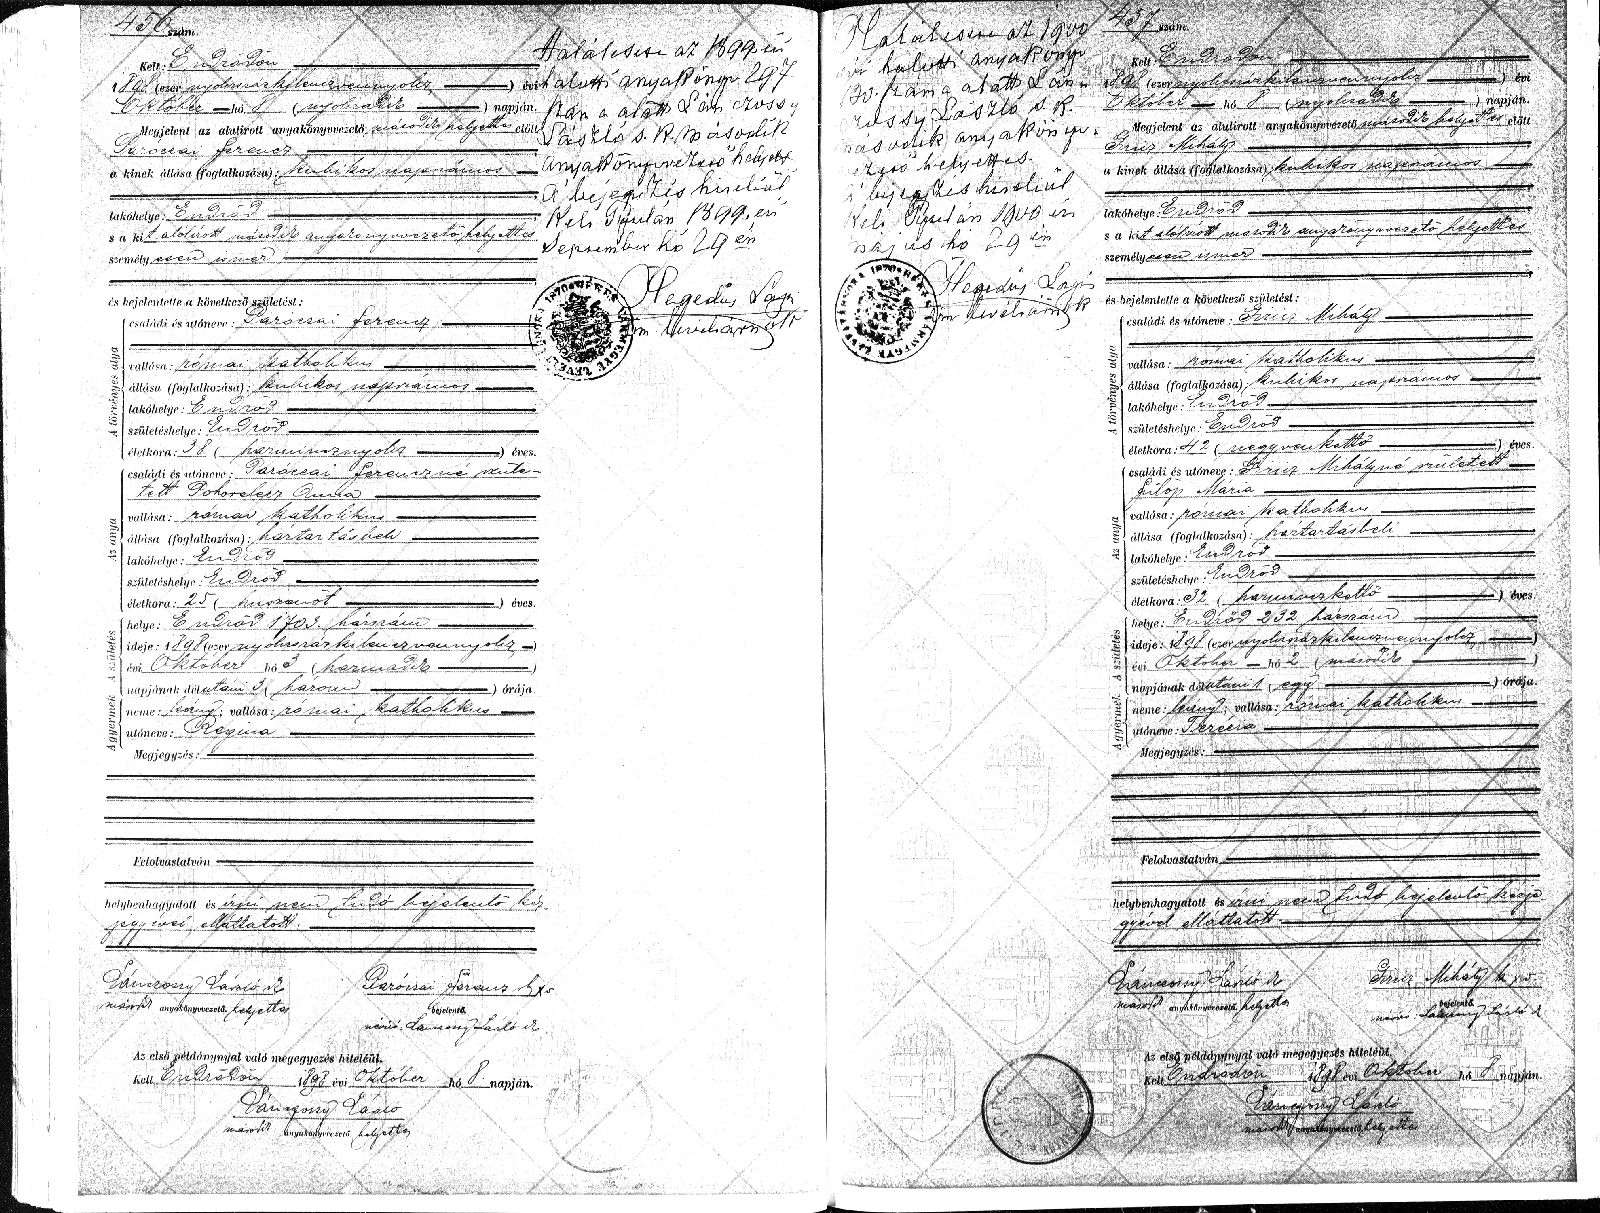 456 szám.
Kelt: Endrődön
1898 (ezer nyolcszázkilencvennyolcz) évi
Október hó 8 (nyolcadik) napján.
Megjelent az alulirott anyakönyvvezető második helyettes előtt
Paróczai Ferencz
a kinek állása (foglalkozása): kubikos napszámos
lakóhelye: Endrőd
s a kit alólirott második anyakönyvvezető helyettes
személyesen ismer
és bejelentette a következő születést:
A törvényes atya
családi és utóneve: Paróczai Ferencz
vallása: római katholikus
állása (foglalkozása): kubikos napszámos
lakóhelye: Endrőd
születéshelye: Endrőd
életkora: 38 (harmincznyolcz) éves.
Az anya
családi és utóneve: Paróczai Ferenczné szüle-
tett Anna
vallása: római katholikus
állása (foglalkozása): háztartásbeli
lakóhelye: Endrőd
születéshelye: Endrőd
életkora: 25 (huszonöt) éves.
A születés
helye: Endrőd 1703 házszám
ideje: 1898 (ezer nyolcszázkilencvennyolcz)
évi Október hó 3 (harmadik)
napjának délutáni 3 (három) órája
A gyermek
neme: leány; vallása: római katholikus
utóneve: Regina
Megjegyzés:
Felolvastatván
helybenhagyatott és írni nem tudó bejelentő kéz-
jegyével elláttatott.
Lánczossy László sk
második anyakönyvvezető helyettes
Paróczai Ferencz k x v
bejelentő.
névíró: Lánczossy László sk
Az első példánynyal való megegyezés hiteléül.
Kelt Endrődön 1898 évi Október hó 8 napján.
Lánczossy László
második anyakönyvvezető helyettes
Halálesete az 1899 évi
halotti anyakönyv 297
szám alatt Lánczossy
László s.k. második
anyakönyvvezető helyettes
A bejegyzés hiteléül
Kelt Gyulán 1899. évi
September hó 29 én
Hegedűs Lajos
m levéltárnok
Halálesete az 1900
évi halotti anyakönyv
szám alatt Lán-
czossy László s.k.
második anyakönyv-
vezető helyettes.
A bejegyzés hiteléül
Kelt Gyulán 1900 évi
május hó 29 én
Hegedűs Lajos
m levéltárnok
457 szám.
Kelt Endrődön
1898 (ezer nyolcszázkilencvennyolcz) évi
Október hó 8 (nyolcadik) napján.
Megjelent az alulirott anyakönyvvezető második helyettes előtt
Mihály
a kinek állása (foglalkozása) kubikos napszámos
lakóhelye: Endrőd
s a kit alólirott második anyakönyvvezető helyettes
személyesen ismer
és bejelentette a következő születést:
A törvényes atya
családi és utóneve: Mihály
vallása: római katholikus
állása (foglalkozása) kubikos napszámos
lakóhelye: Endrőd
születéshelye: Endrőd
életkora: 42 (negyvenkettő) éves.
Az anya
családi és utóneve: Mihályné született
Fülöp Mária
vallása: római katholikus
állása (foglalkozása): háztartásbeli
lakóhelye: Endrőd
születéshelye: Endrőd
életkora: 32 (harminczkettő) éves
A születés
helye: Endrőd 232 házszám
ideje: 1898 (ezer nyolcszázkilencvennyolcz)
évi Október hó 2 (második)
napjának délutáni 1 (egy) órája.
A gyermek
neme: leány; vallása: római katholikus
utóneve: Terézia
Megjegyzés:
Felolvastatván
helybenhagyatott és írni nem tudó bejelentő kézje-
gyével elláttatott
Lánczossy László sk
második anyakönyvvezető helyettes
Mihály k x v.
bejelentő.
névíró: Lánczossy László sk
Az első példánynyal való megegyezés hiteléül.
Kelt Endrődön 1898 évi Október hó 8 napján.
Lánczossy László
második anyakönyvvezető helyettes